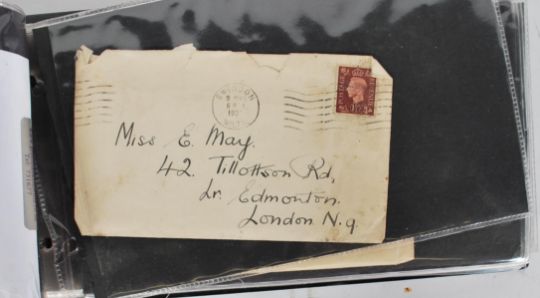 SWINDON
Miss E. May.
42. Tillottson Rd,
Lr. Edmonton.
London N.9.